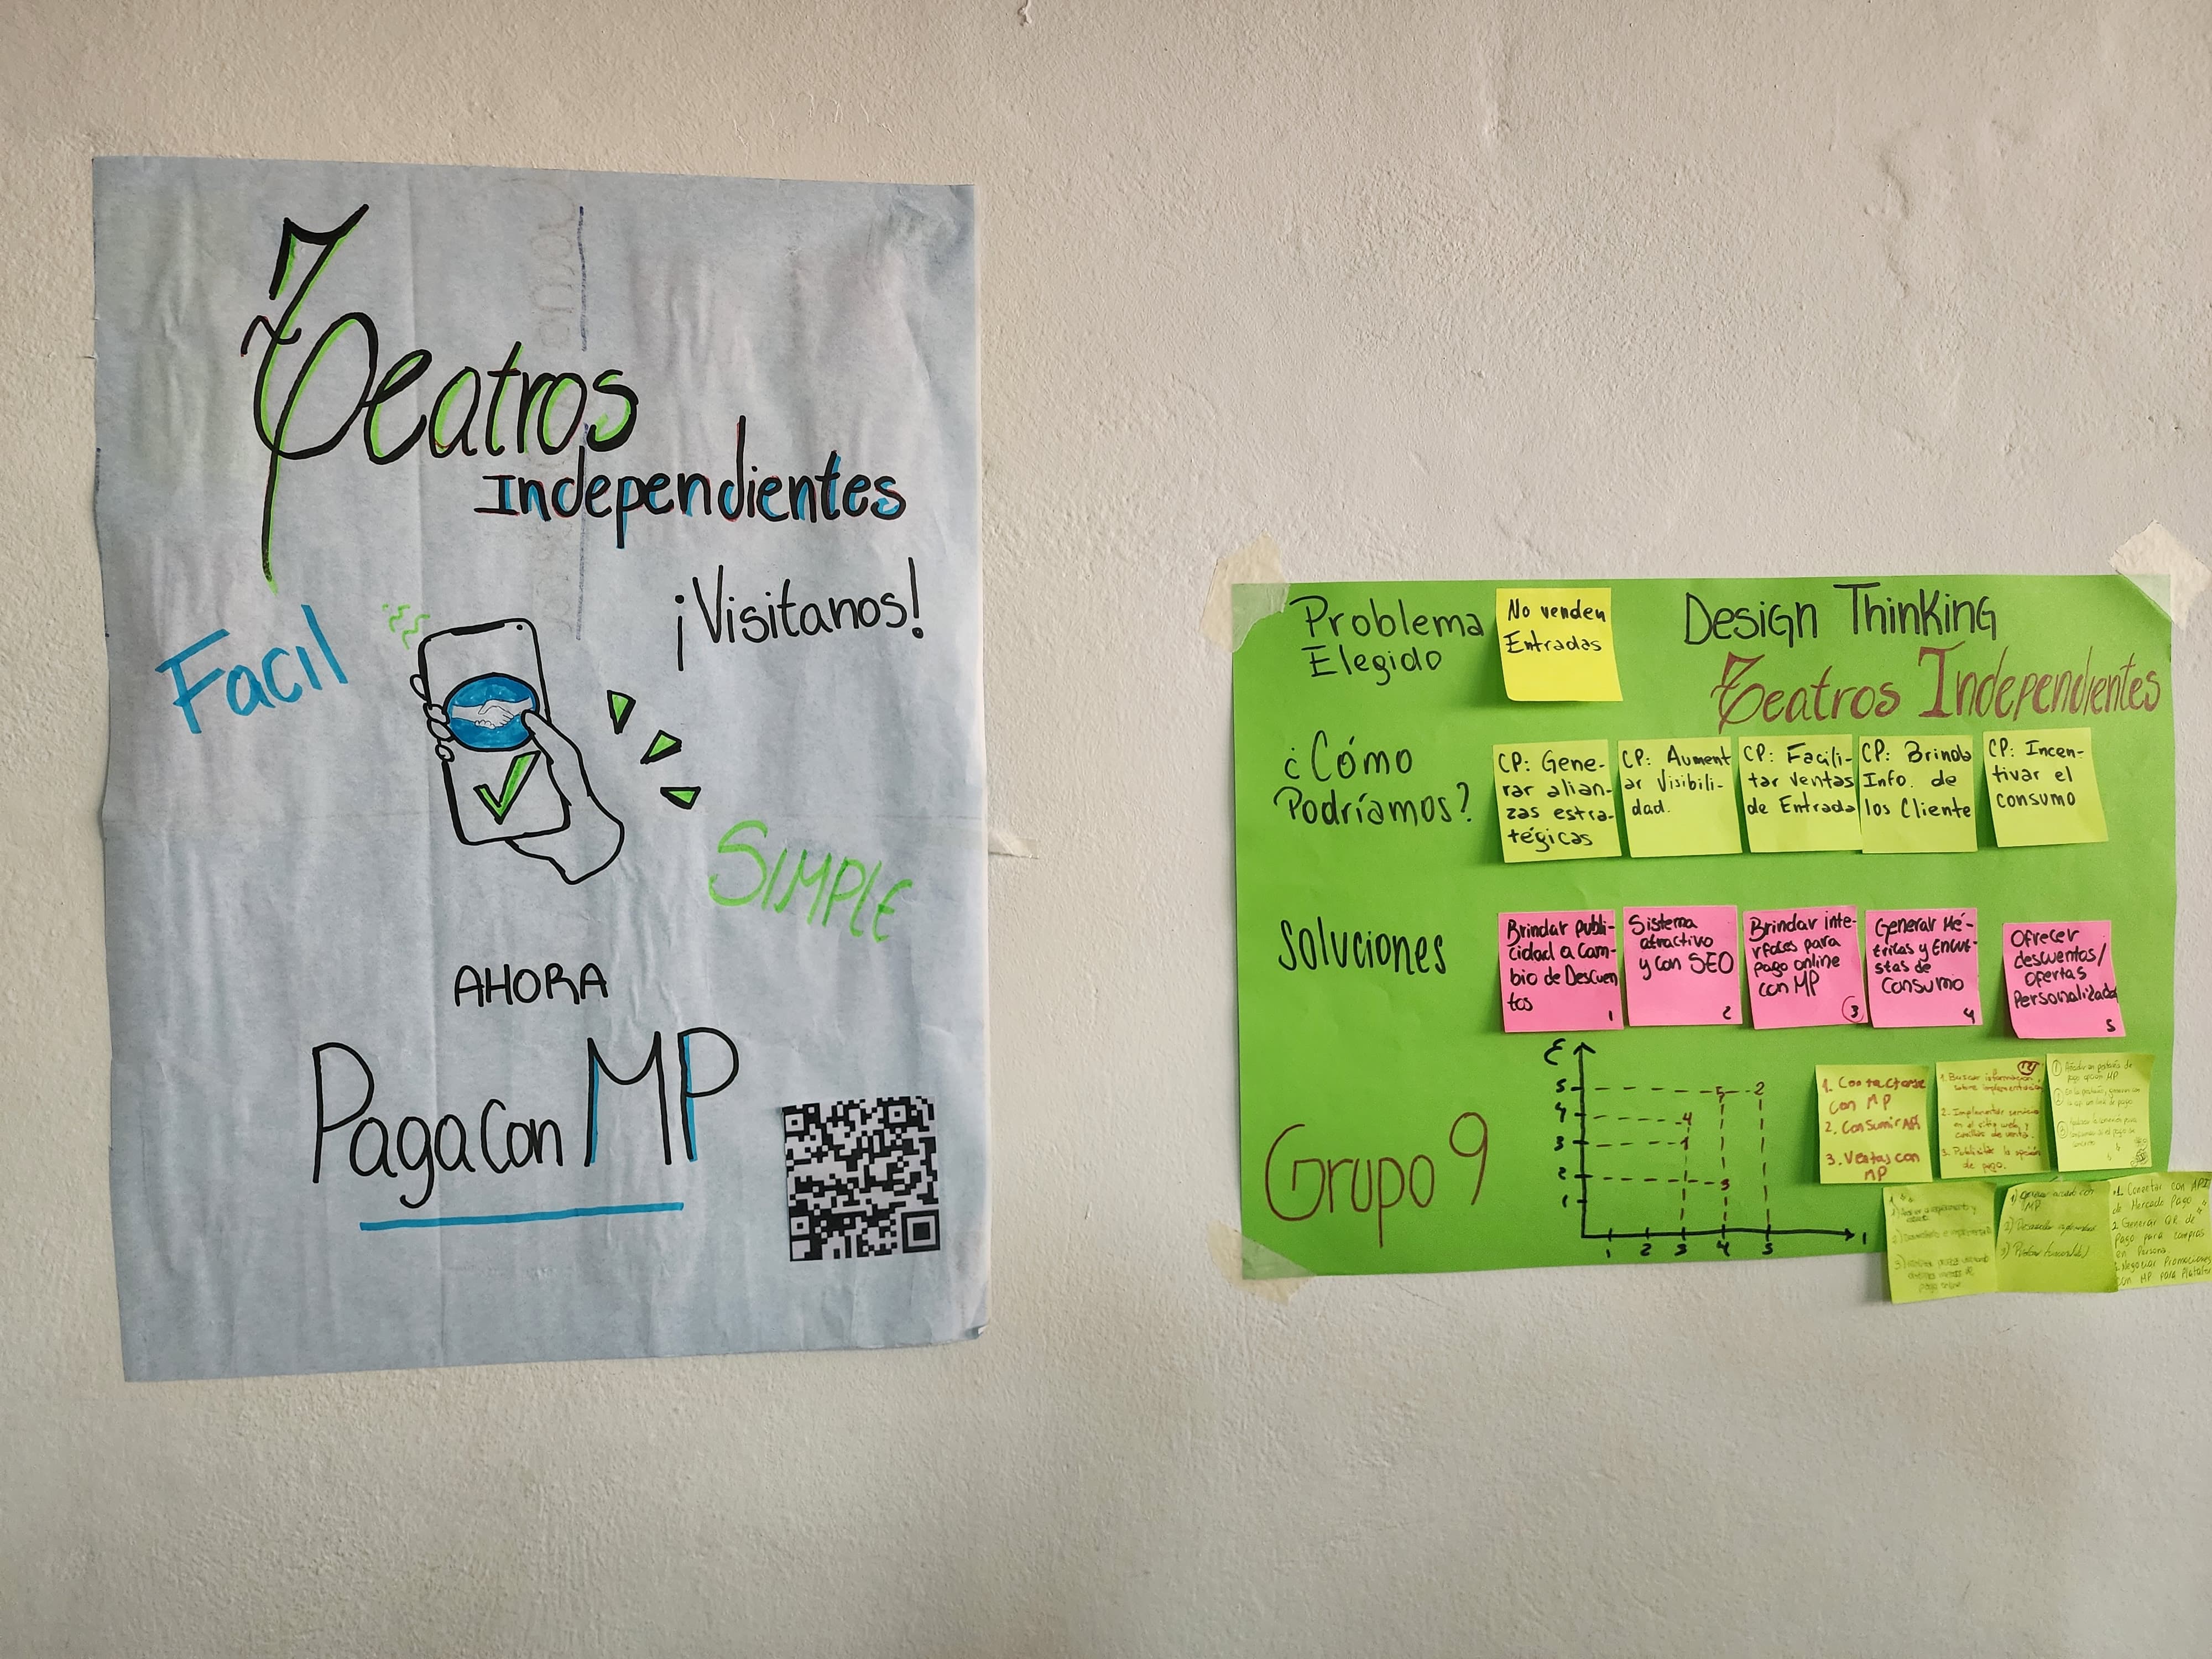 Teatros
Independientes
¡Visitanos!
Facil
SIMPLE
AHORA
Paga con MP
Problema
Elegido
No venden
Entradas
Design Thinking
Teatros Independientes
¿Cómo
Podríamos?
CP: Gene-
rar alian-
zas estra-
tégicas
CP: Aument
ar Visibili-
dad.
CP: Facili-
tar ventas
de Entrada
CP: Brinda
Info. de
los Cliente
CP: Incen-
tivar el
consumo
Soluciones
Brindar publi-
cidad a cam-
bio de Descuen
tos
1
Sistema
atractivo
y con SEO
2
Brindar inte-
rfaces para
pago online
con MP
3
Generar Mé-
tricas y Encue-
stas de
consumo
4
Ofrecer
descuentos/
ofertas
Personalizada
5
Grupo 9
E
5
4
3
2
1
5
2
4
1
3
1 2 3 4 5
I
1. Contactarse
con MP
2. Consumir API
3. Ventas con
MP
1. Buscar información
sobre implementación
2. Implementar servicio
en el sitio web y
canales de venta.
3. Publicitar la opción
de pago.
1 Añadir en pestaña de
pago opción MP
2)
3)
1)
MP
2) Desarrollar
3) Probar
1. Conectar con API
de Mercado Pago
2 Generar QR de
Pago para compras
en Persona
Negociar Promociones
con MP para